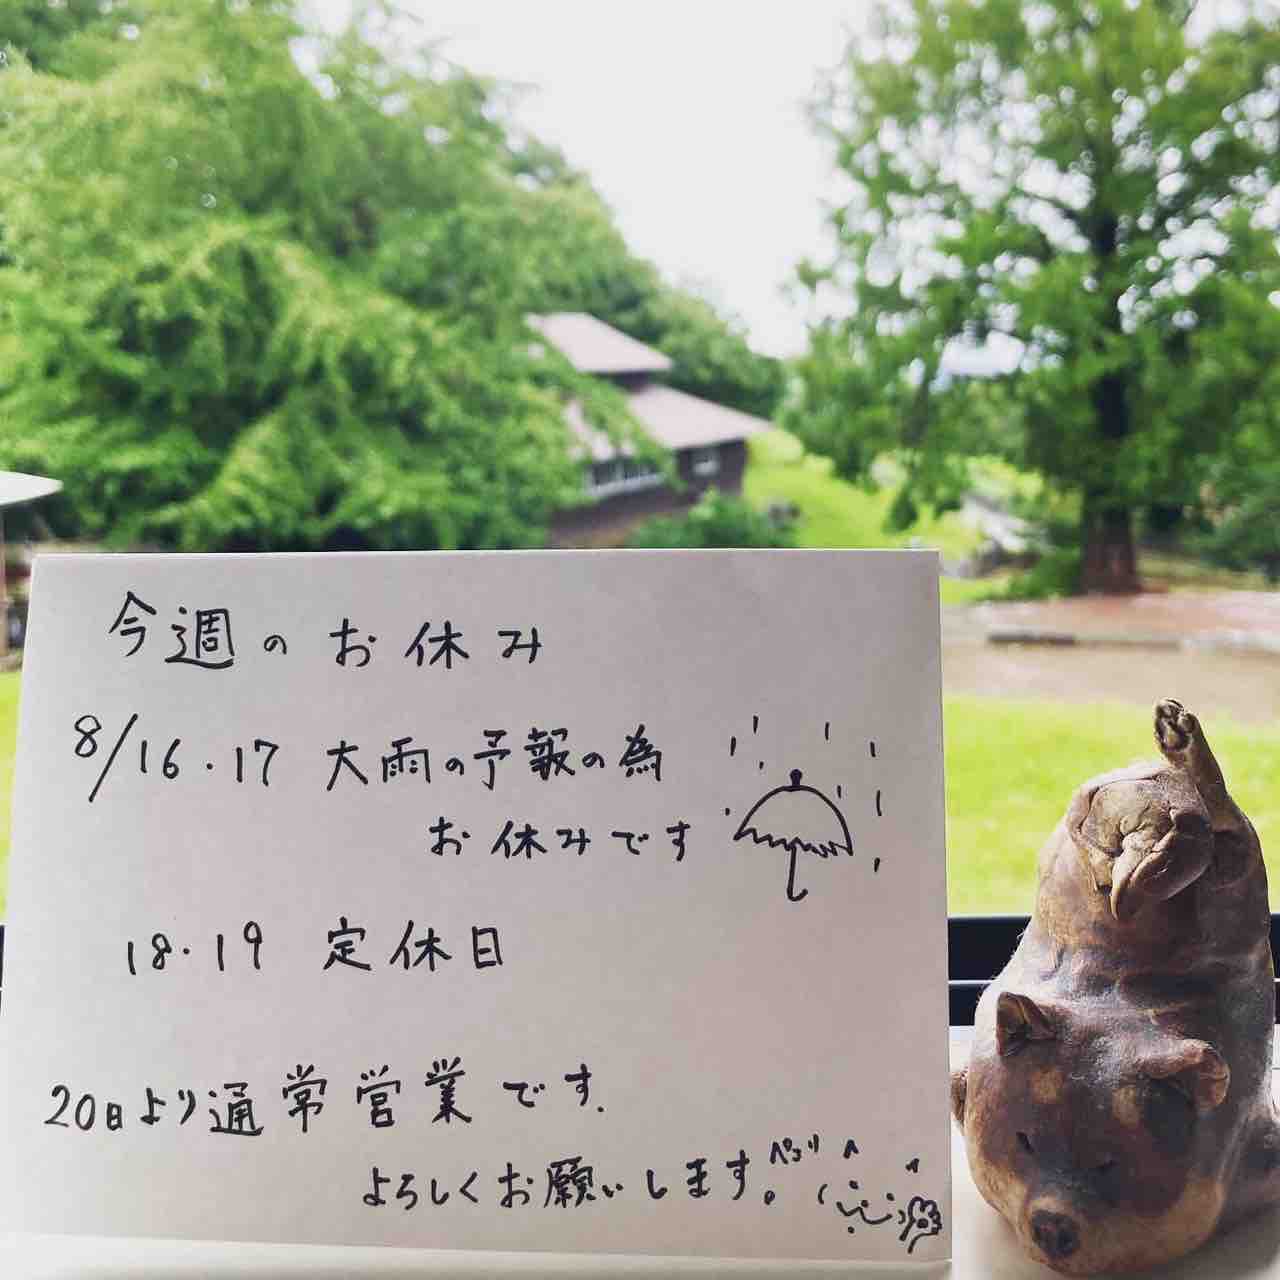 今週のお休み
8/16・17 大雨の予報の為
お休みです
18・19 定休日
20日より通常営業です.
よろしくお願いします。ペコリ